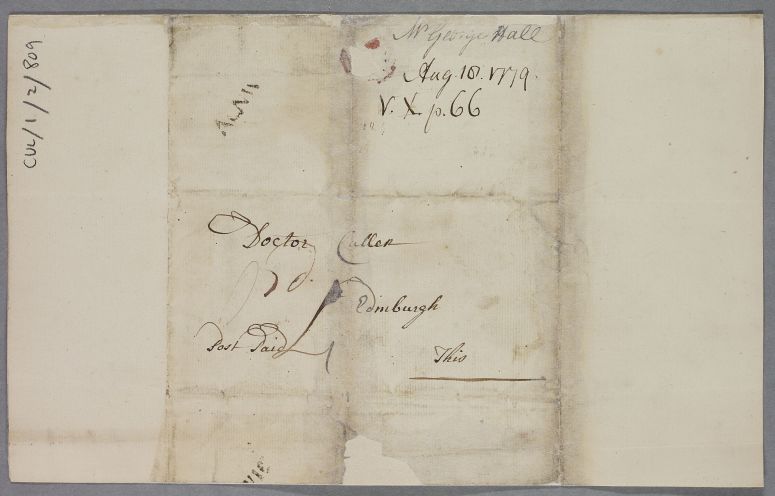 Mr George Hall
Aug. 18. 1779.
V. X. p. 66
CUL/1/2/809
Doctor Cullen
Edinburgh
Post Paid
This